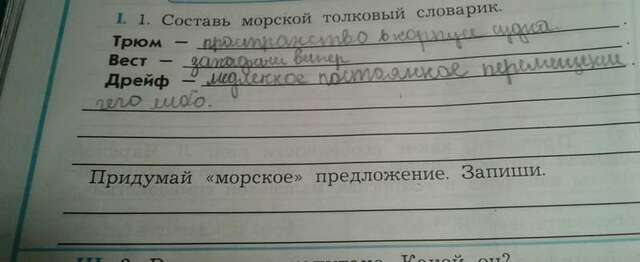 I. 1. Составь морской толковый словарик.
Трюм — пространство в корпусе судна.
Вест — западный ветер.
Дрейф — медленное постоянное перемещении
чего либо.
Придумай «морское» предложение. Запиши.
Какой он?